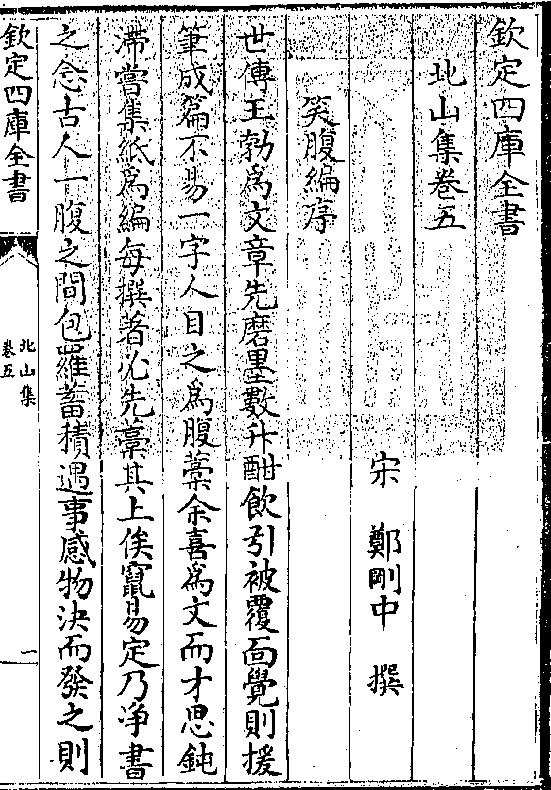 欽定四庫全書
北山集卷五
宋 鄭剛中 撰
笑腹編序
世傳王勃為文章先磨墨數升酣飲引被覆面覺則援
筆成篇不易一字人目之為腹藁余喜為文而才思鈍
滯嘗集紙為編每撰著必先藁其上俟竄易定乃净書
之念古人一腹之間包羅蓄積遇事感物決而發之則
欽定四庫全書
北山集
卷五
一